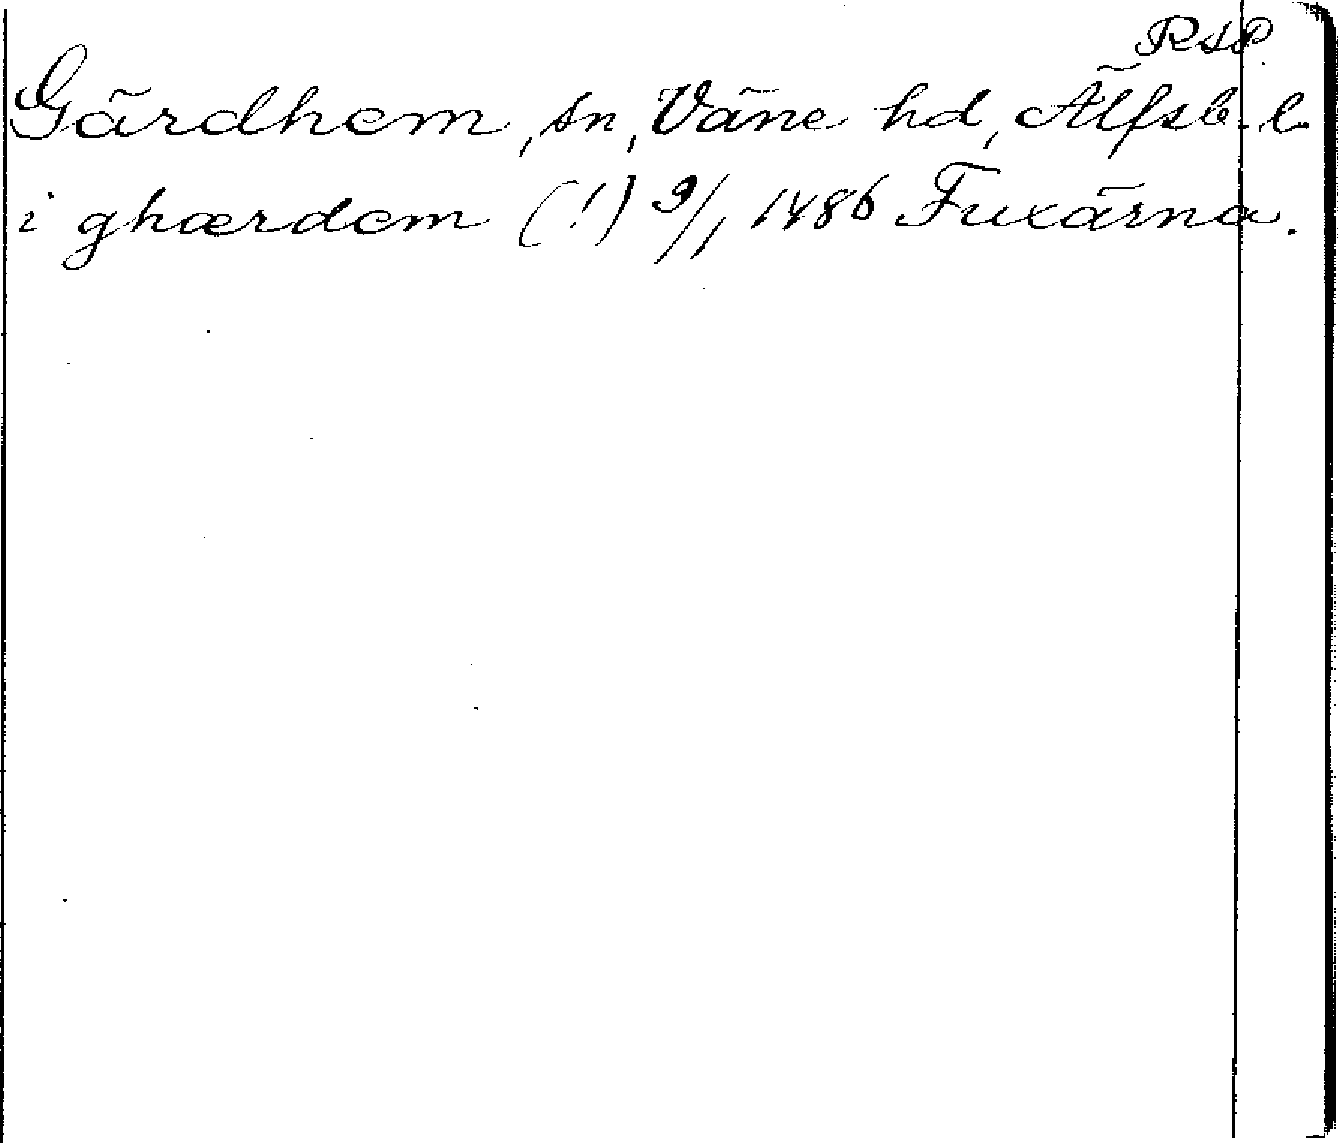 RAP.
Gärdhem, sn, Väne hd, Älfsb. l.
i ghærdem (!) 9/1 1486 Fuxärna.